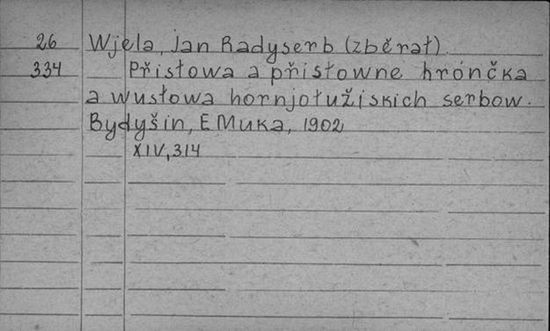 26 Wjela, Jan Radyserb (zběrał).
334 Přisłowa a přisłowne hrónčka
a wusłowa hornjołužiskich serbow.
Bydyšin, E Muka, 1902
XIV, 314